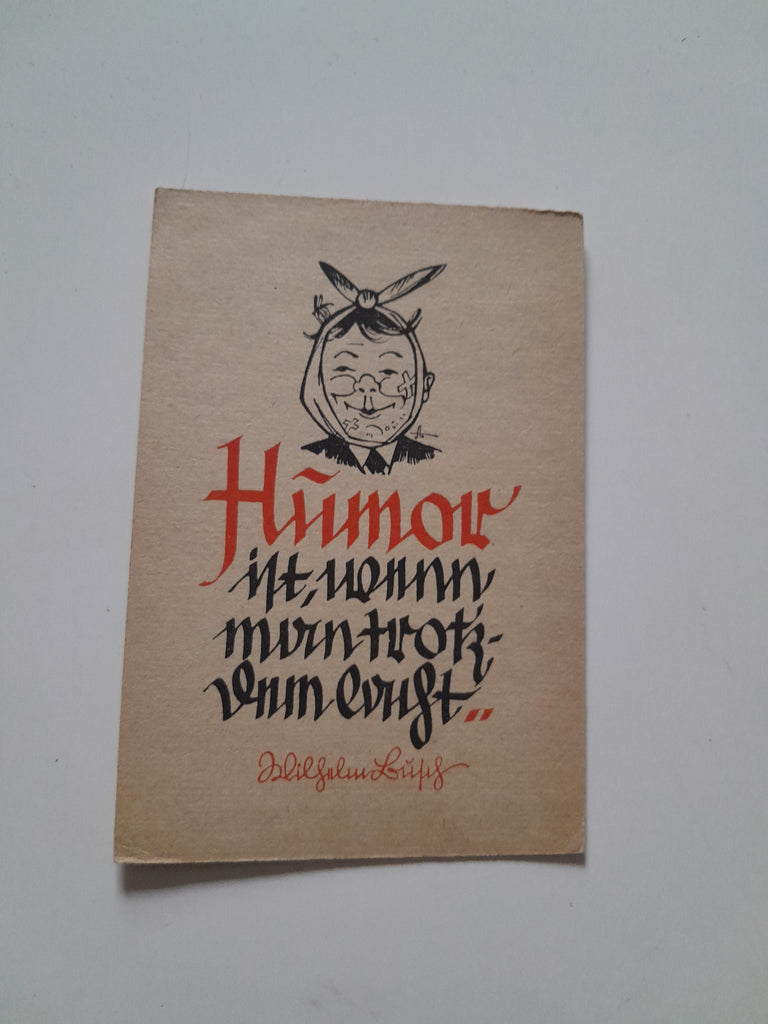 Humor
ist, wenn
man trotz-
dem lacht"
Wilhelm Busch